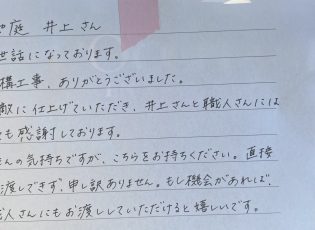 庭 井上さん
世話になっております。
構工事、ありがとうございました。
敵に仕上げていただき、井上さんと職人さんには
も感謝しております。
んの気持ちですが、こちらをお持ちください。直接
渡しできず、申し訳ありません。もし機会があれば、
人さんにもお渡ししていただけると嬉しいです。